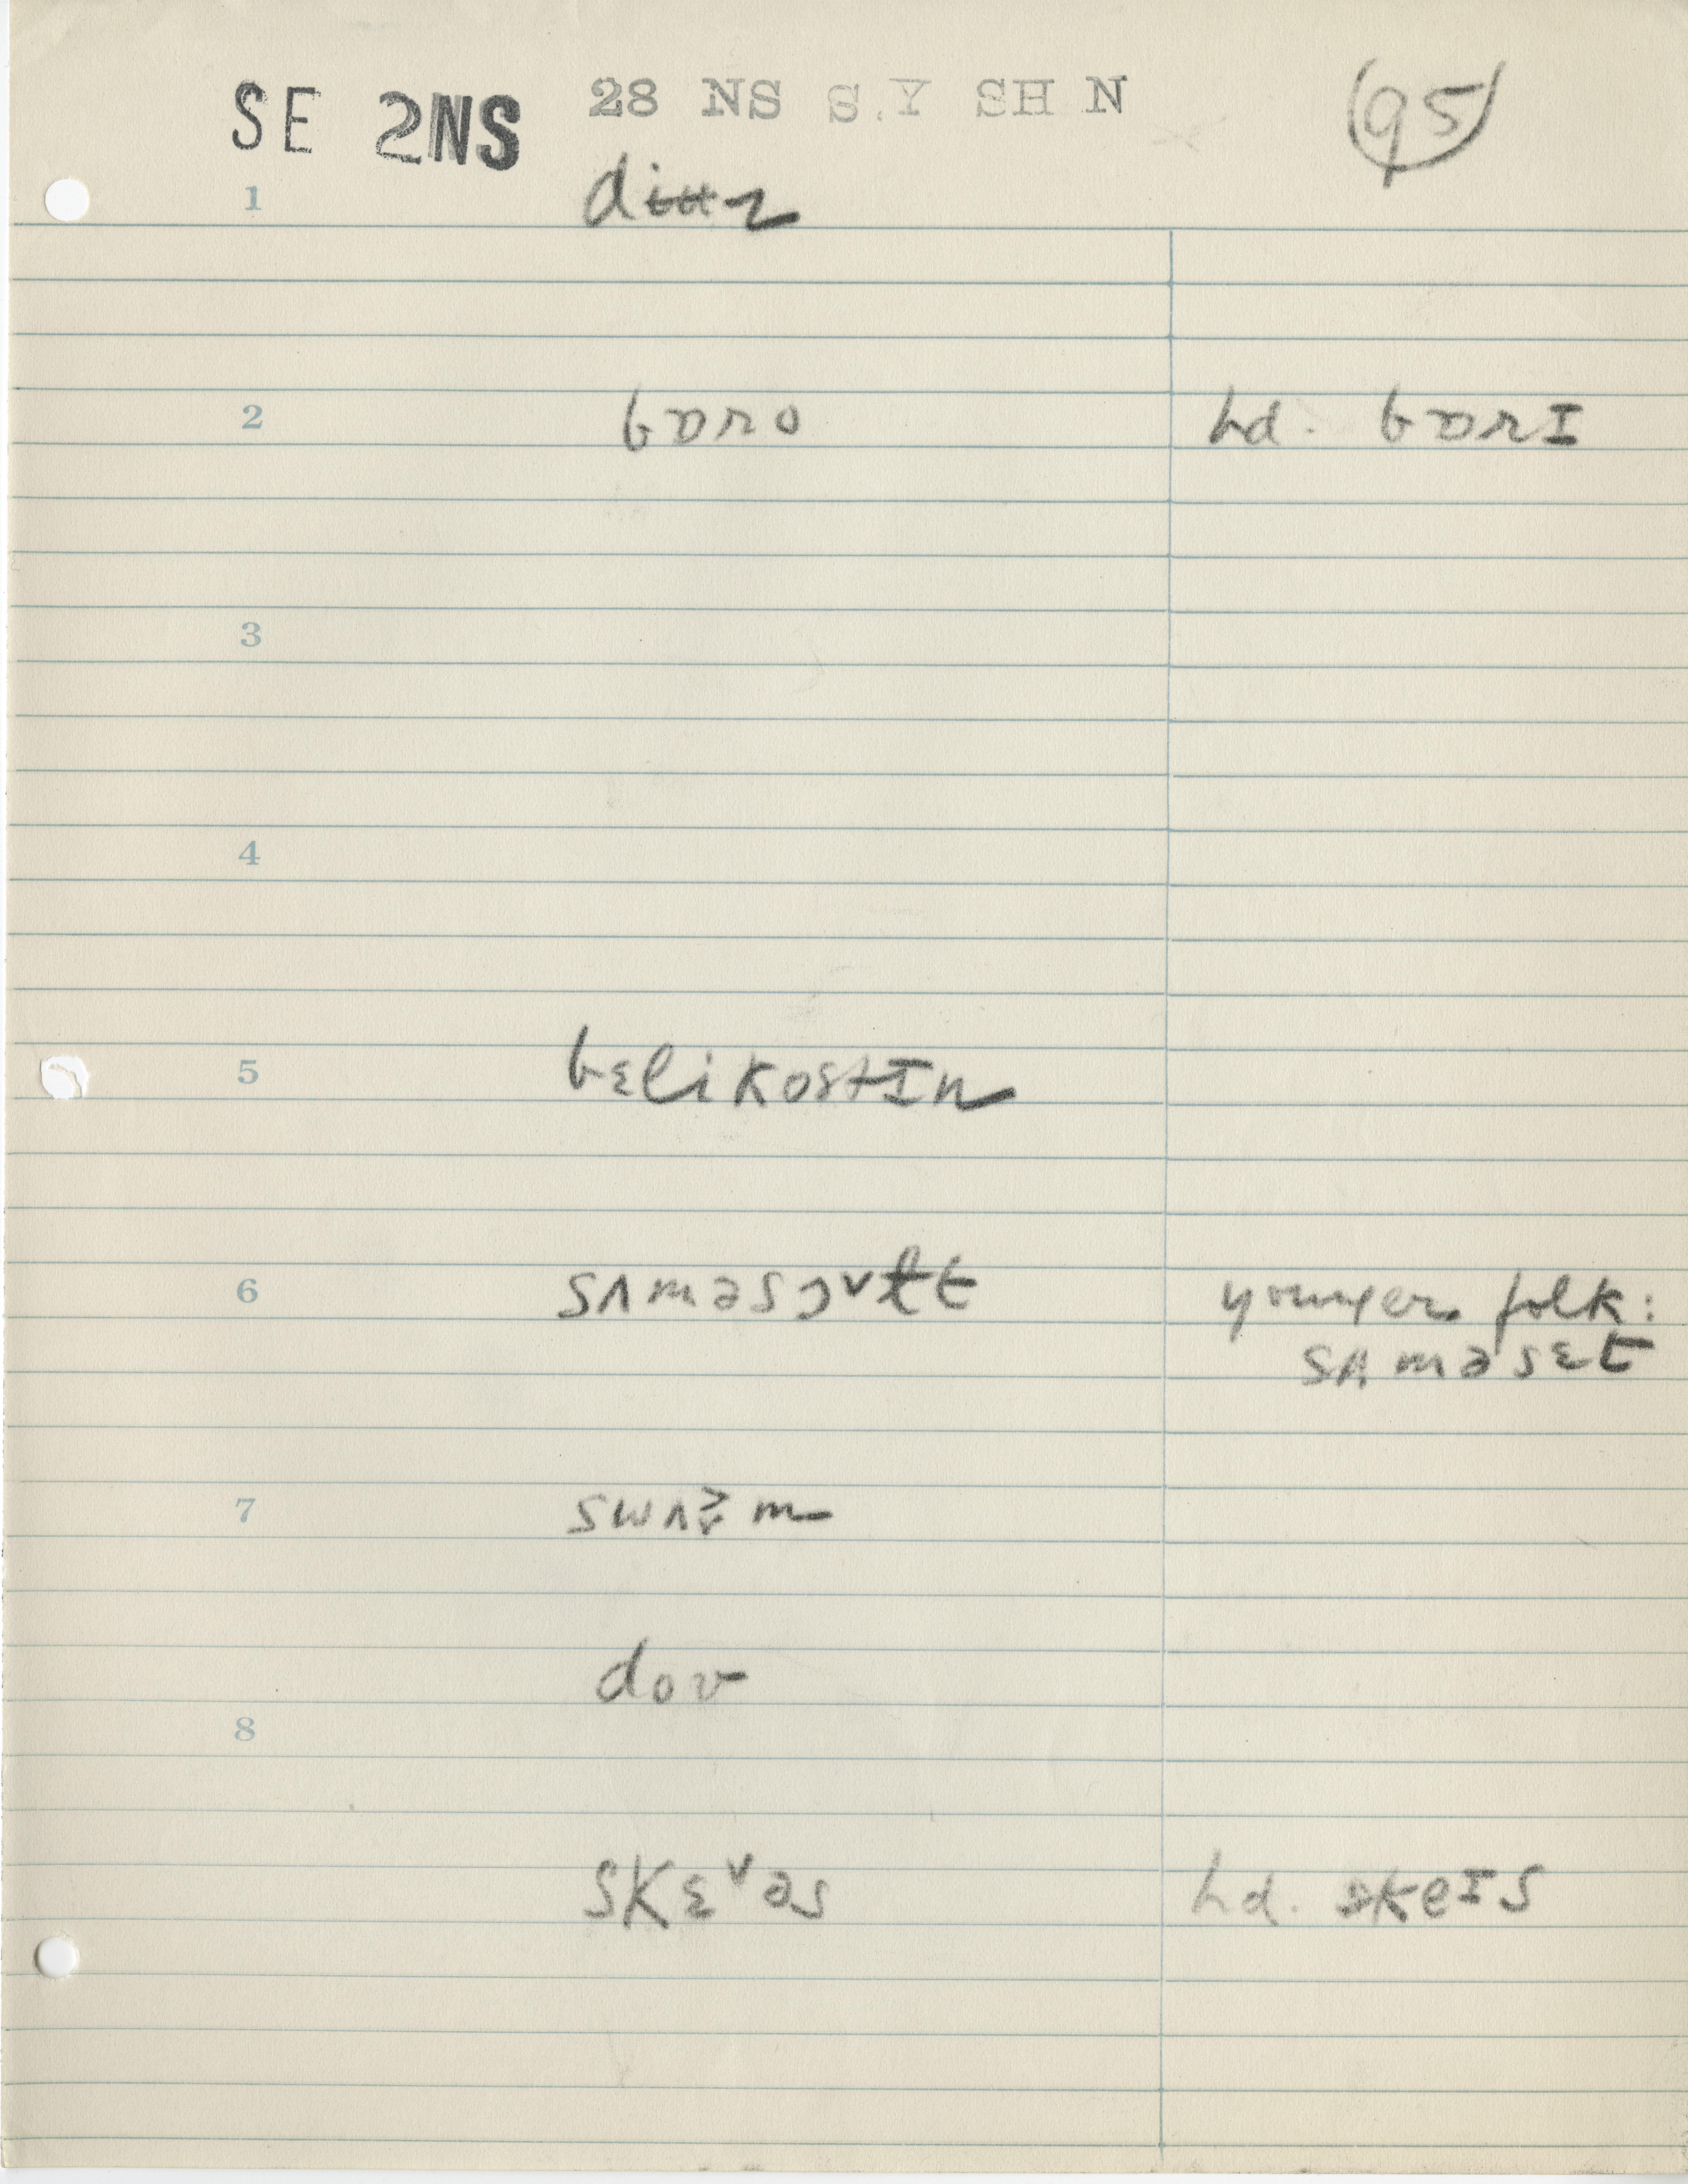 SE 2NS 28 NS S.Y SH N 95
1
2 bɒro hd. bɒrI
3
4
5 bɛlikostIn
6 sʌməsɔᵛ younger folk:
sʌməsɛt
7
dov
8
skɛᵛəs hd. skeIs